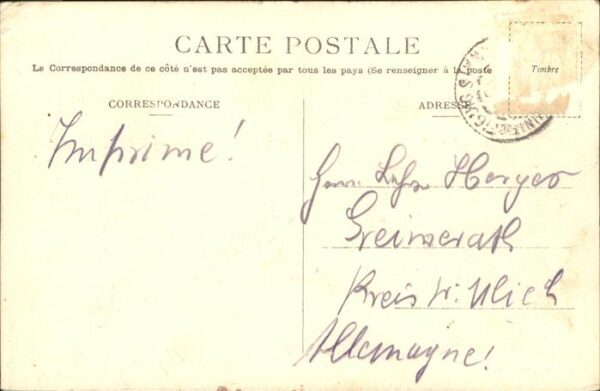 CARTE POSTALE
La Correspondance de ce côté n'est pas acceptée par tous les pays (Se renseigner à la poste
Timbre
CORRESPONDANCE
ADRESSE
Imprimé!
Herrn Herges
Greimerath
Kreis W.
Allemagne!